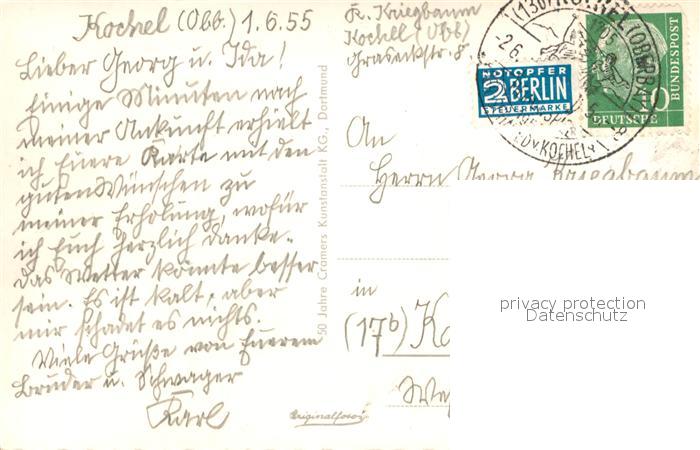 Kochel (Obb.) 1.6.55
Lieber Georg u. Ida!
Einige Minuten nach
meiner Ankunft erhielt
ich Euere Karte mit den
guten Wünschen zu
meiner Erholung, wofür
ich Euch herzlich danke.
Das Wetter könnte besser
sein. Es ist kalt, aber
mir schadet es nichts.
Viele Grüße von Euerem
Bruder u. Schwager
Karl
50 Jahre Cramers Kunstanstalt KG., Dortmund
K. Kriegbaum
Kochel (Obb)
NOTOPFER
2 BERLIN
STEUERMARKE
DEUTSCHE BUNDESPOST
10
(13b) KOCHEL (OBERBAY)
-2.6.
An
Herrn Georg Kriegbaum
in
(17b)
Originalfoto
privacy protection
Datenschutz